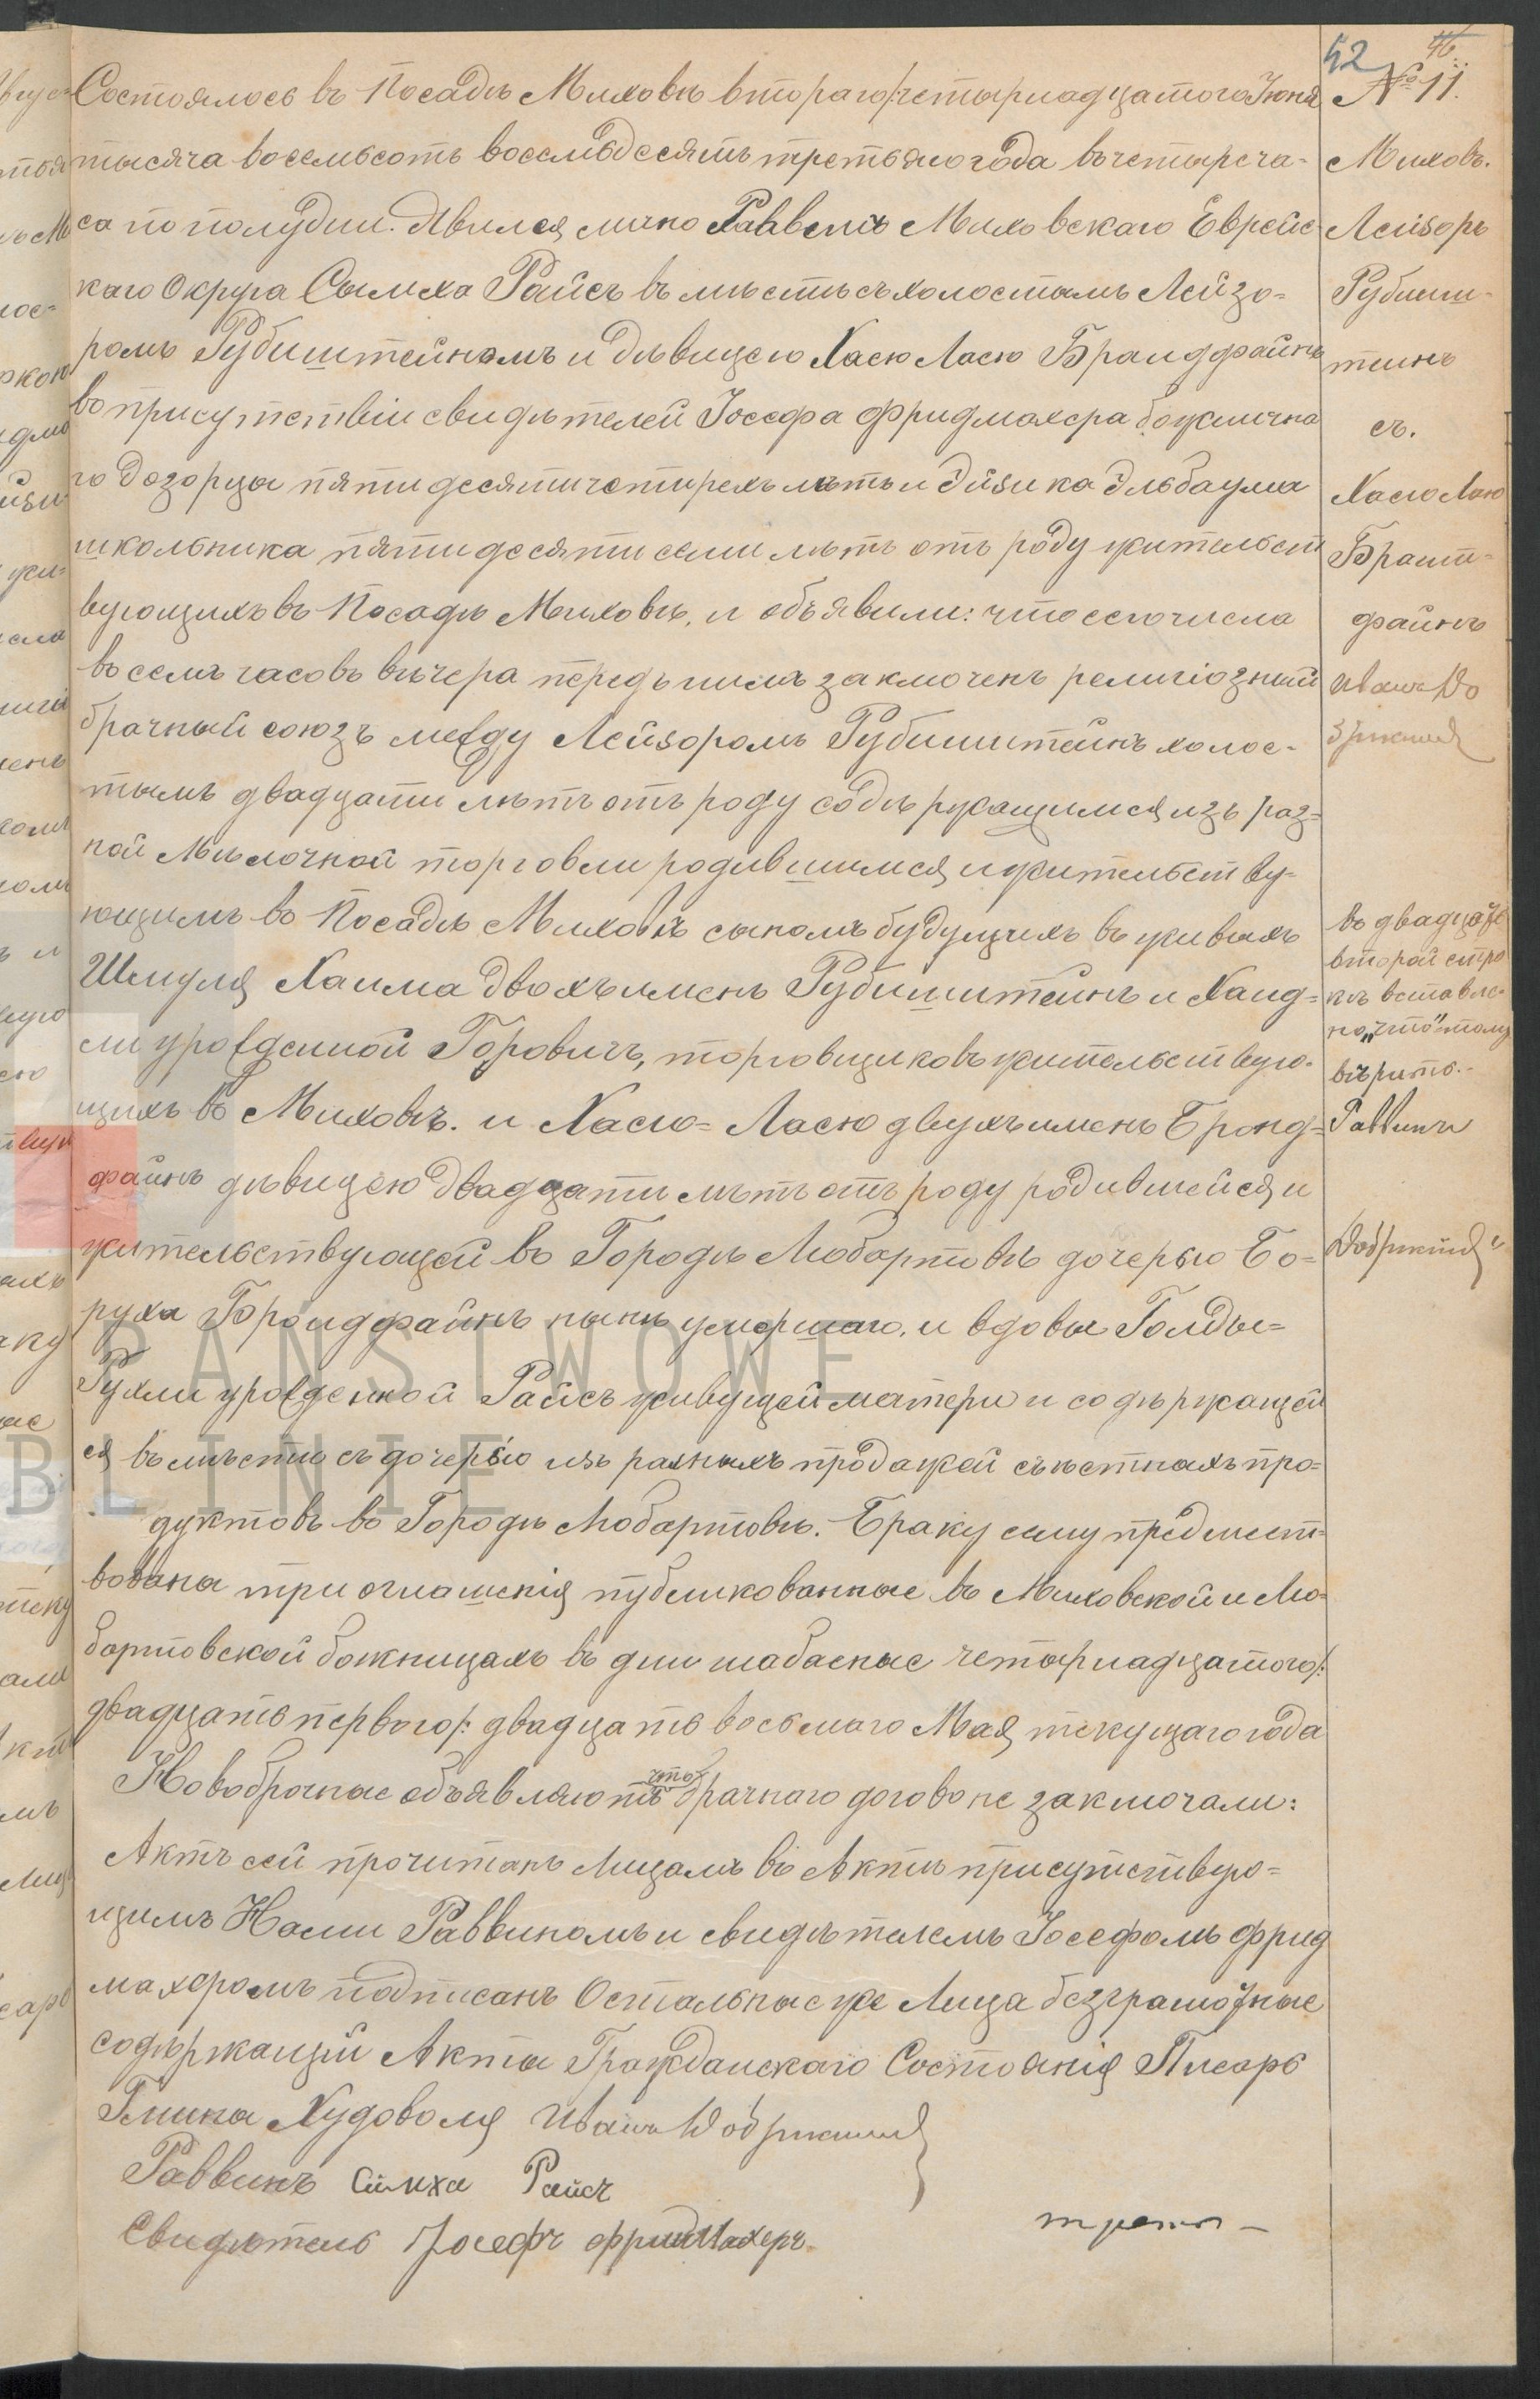 52 46
№ 11.
Михов.
Лейзоръ
Рубинш-
тейнъ
съ.
Хасю Ласю
Брант-
файнъ
Иванъ До
въ двадцать
второй стро
къ вставле-
но „что“ тому
вѣрить.-
Раввинъ
Состоялось въ Посадѣ Миховѣ втораго/:четырнадцатого Іюня
тысяча восемьсотъ восемьдесятъ третьяго года въ четыре ча-
са по полудни. Явился лично Раввинъ Миховскаго Еврейс-
каго Округа Сымха Райсъ вмѣстѣ съ холостымъ Лейзо-
ромъ Рубинштейномъ и дѣвицею Хасю Ласю Брандфайнъ
во присутствіи свидѣтелей Іосефа Фридмахера божнична
го дозорцы пятидесяти четырехъ лѣтъ и Эйзика Эльбаума
школьника пятидесяти семи лѣтъ отъ роду жительст
вующихъ въ Посадѣ Миховѣ, и объявили: что сего числа
въ семъ часовъ вѣчера передъ нимъ заключенъ религіозный
брачный союзъ между Лейзоромъ Рубинштейнъ холос-
тымъ двадцати лѣтъ отъ роду содѣржащимся изъ раз-
ной мѣлочной торговли родившимся и жительству-
ющимъ во Посадѣ Миховѣ сыномъ будущихъ въ живыхъ
Шмуля Хаима двохъ именъ Рубинштейнъ и Ханд-
ли урожденной Горовичъ, торговщиковъ жительствую-
щихъ въ Миховѣ. и Хасю-Ласю двухъ именъ Бронд-
файнъ дѣвицею двадцати лѣтъ отъ роду родившейся и
жительствующей во Городѣ Любартовѣ дочерью Бо-
руха Брондфайнъ нынѣ умершаго, и вдовы Голды-
Рухли урожденной Райсъ живущей матери и содѣржащей
ся вмѣстѣ съ дочерью изъ разныхъ продажей съѣстныхъ про-
дуктовъ во Городѣ Любартовѣ. Браку сему предшест-
вована три оглашенія публикованные въ Миховской и Лю-
бартовской божницахъ въ дни шабасные четырнадцатого/:
двадцать первого/: двадцать восьмаго Мая текущаго года
Новобрачные объявляютъ что брачнаго догово не заключали:
Актъ сей прочитанъ Лицамъ въ Актѣ присутствую-
щимъ Нами Раввиномъ и свидѣтелемъ Іосефомъ Фрид
махеромъ подписанъ Остальные же Лица безграмотные
содѣржащій Акты Гражданскаго Состоянія Писарь
Гмина Худоволя Иванъ
Раввинъ Симха Райсъ
Свидѣтель Іосефъ Фридмахеръ
PAŃSTWOWE
BLINIE